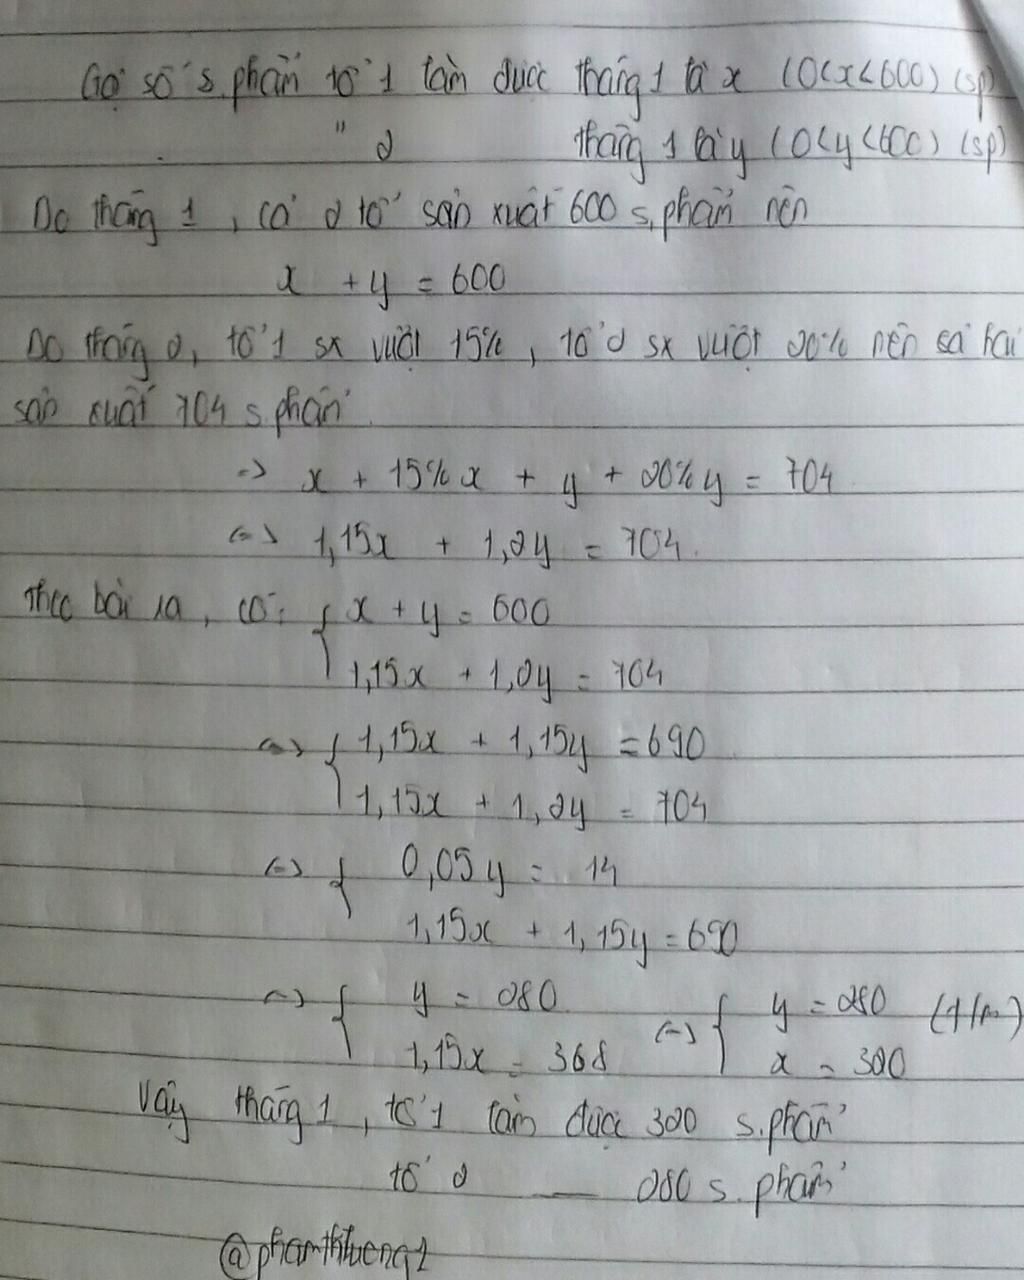 Gọi số s.phẩm tổ 1 làm được tháng 1 là x (0<x<600) (sp)
" 2 tháng 1 là y (0<y<600) (sp)
Do tháng 1, cả 2 tổ sản xuất 600 s.phẩm nên
x + y = 600
Do tháng 2, tổ 1 sx vượt 15%, tổ 2 sx vượt 20% nên cả hai
sản xuất 704 s.phẩm
=> x + 15%x + y + 20%y = 704
<=> 1,15x + 1,2y = 704.
Theo bài ra, có: { x + y = 600
1,15x + 1,2y = 704
<=> { 1,15x + 1,15y = 690
1,15x + 1,2y = 704
<=> { 0,05y = 14
1,15x + 1,15y = 690
<=> { y = 280 <=> { y = 280 (t/m)
1,15x = 368 x = 320
Vậy tháng 1, tổ 1 làm được 320 s.phẩm
tổ 2 — 280 s.phẩm
@phamthitueng2